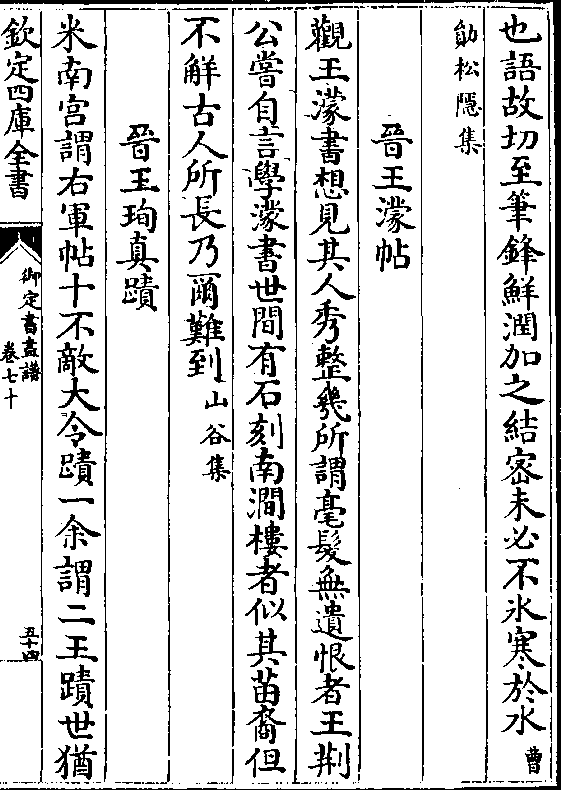 也語故切至筆鋒鮮潤加之結密未必不氷寒於水曹
勛松隱集
晉王濛帖
觀王濛書想見其人秀整幾所謂毫髮無遺恨者王荆
公嘗自言學濛書世間有石刻南澗樓者似其苗裔但
不解古人所長乃爾難到山谷集
晉王珣真蹟
米南宫謂右軍帖十不敵大令蹟一余謂二王蹟世猶
欽定四庫全書
御定書畫譜
卷七十
五十四